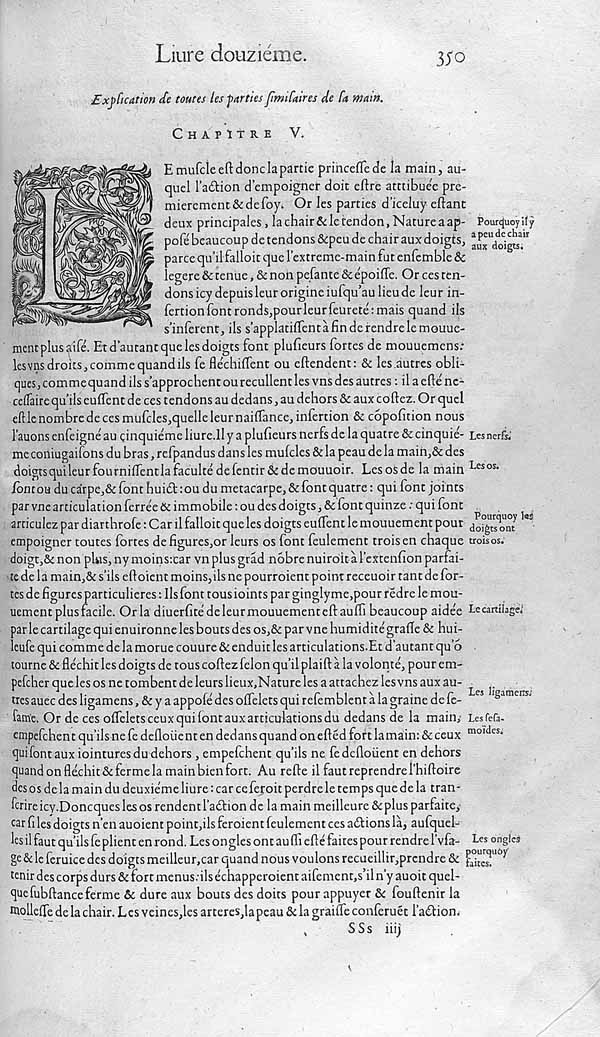 Liure douziéme. 350
Explication de toutes les parties ſimilaires de la main.
CHAPITRE V.
LE muſcle eſt donc la partie princeſſe de la main, au-
quel l'action d'empoigner doit eſtre atttibuée pre-
mierement & de ſoy. Or les parties d'iceluy eſtant
deux principales, la chair & le tendon, Nature a ap-
poſé beaucoup de tendons & peu de chair aux doigts,
parce qu'il falloit que l'extreme-main fut enſemble &
legere & tenue, & non peſante & époiſſe. Or ces ten-
dons icy depuis leur origine iuſqu'au lieu de leur in-
ſertion ſont ronds, pour leur ſeureté: mais quand ils
s'inſerent, ils s'applatiſſent à fin de rendre le mouue-
ment plus aiſé. Et d'autant que les doigts ſont pluſieurs ſortes de mouuemens:
les vns droits, comme quand ils ſe fléchiſſent ou eſtendent: & les autres obli-
ques, comme quand ils s'approchent ou recullent les vns des autres: il a eſté ne-
ceſſaire qu'ils euſſent de ces tendons au dedans, au dehors & aux coſtez. Or quel
eſt le nombre de ces muſcles, quelle leur naiſſance, inſertion & cõpoſition nous
l'auons enſeigné au çinquiéme liure. Il y a pluſieurs nerfs de la quatre & cinquié-
me coniugaiſons du bras, reſpandus dans les muſcles & la peau de la main, & des
doigts qui leur fourniſſent la faculté de ſentir & de mouuoir. Les os de la main
ſont ou du carpe, & ſont huict: ou du metacarpe, & ſont quatre: qui ſont joints
par vne articulation ſerrée & immobile: ou des doigts, & ſont quinze: qui ſont
articulez par diarthroſe: Car il falloit que les doigts euſſent le mouuement pour
empoigner toutes ſortes de figures, or leurs os ſont ſeulement trois en chaque
doigt, & non plus, ny moins: car vn plus grãd nõbre nuiroit à l'extenſion parfai-
te de la main, & s'ils eſtoient moins, ils ne pourroient point receuoir tant de ſor-
tes de figures particulieres: Ils ſont tous ioints par ginglyme, pour rẽdre le mou-
uement plus facile. Or la diuerſité de leur mouuement eſt auſſi beaucoup aidée
par le cartilage qui enuironne les bouts des os, & par vne humidité graſſe & hui-
leuſe qui comme de la morue couure & enduit les articulations. Et d'autant qu'õ
tourne & fléchit les doigts de tous coſtez ſelon qu'il plaiſt à la volonté, pour em-
peſcher que les os ne tombent de leurs lieux, Nature les a attachez les vns aux au-
tres auec des ligamens, & y a appoſé des oſſelets qui reſemblent à la graine de ſe-
ſame. Or de ces oſſelets ceux qui ſont aux articulations du dedans de la main,
empeſchent qu'ils ne ſe deſloüent en dedans quand on eſtẽd fort la main: & ceux
qui ſont aux iointures du dehors, empeſchent qu'ils ne ſe deſloüent en dehors
quand on fléchit & ferme la main bien fort. Au reſte il faut reprendre l'hiſtoire
des os de la main du deuxiéme liure: car ce ſeroit perdre le temps que de la tran-
ſcrire icy. Doncques les os rendent l'action de la main meilleure & plus parfaite,
car ſi les doigts n'en auoient point, ils feroient ſeulement ces actions là, auſquel-
les il faut qu'ils ſe plient en rond. Les ongles ont auſſi eſté faites pour rendre l'vſa-
ge & le ſeruice des doigts meilleur, car quand nous voulons recueillir, prendre &
tenir des corps durs & fort menus: ils échapperoient aiſement, s'il n'y auoit quel-
que ſubſtance ferme & dure aux bouts des doits pour appuyer & ſouſtenir la
molleſſe de la chair. Les veines, les arteres, la peau & la graiſſe conſeruẽt l'action.
SSs iiij
Pourquoy il y
a peu de chair
aux doigts.
Les nerfs.
Les os.
Pourquoy les
doigts ont
trois os.
Le cartilage.
Les ligamens.
Les ſeſa-
moïdes.
Les ongles
pourquoy
faites.